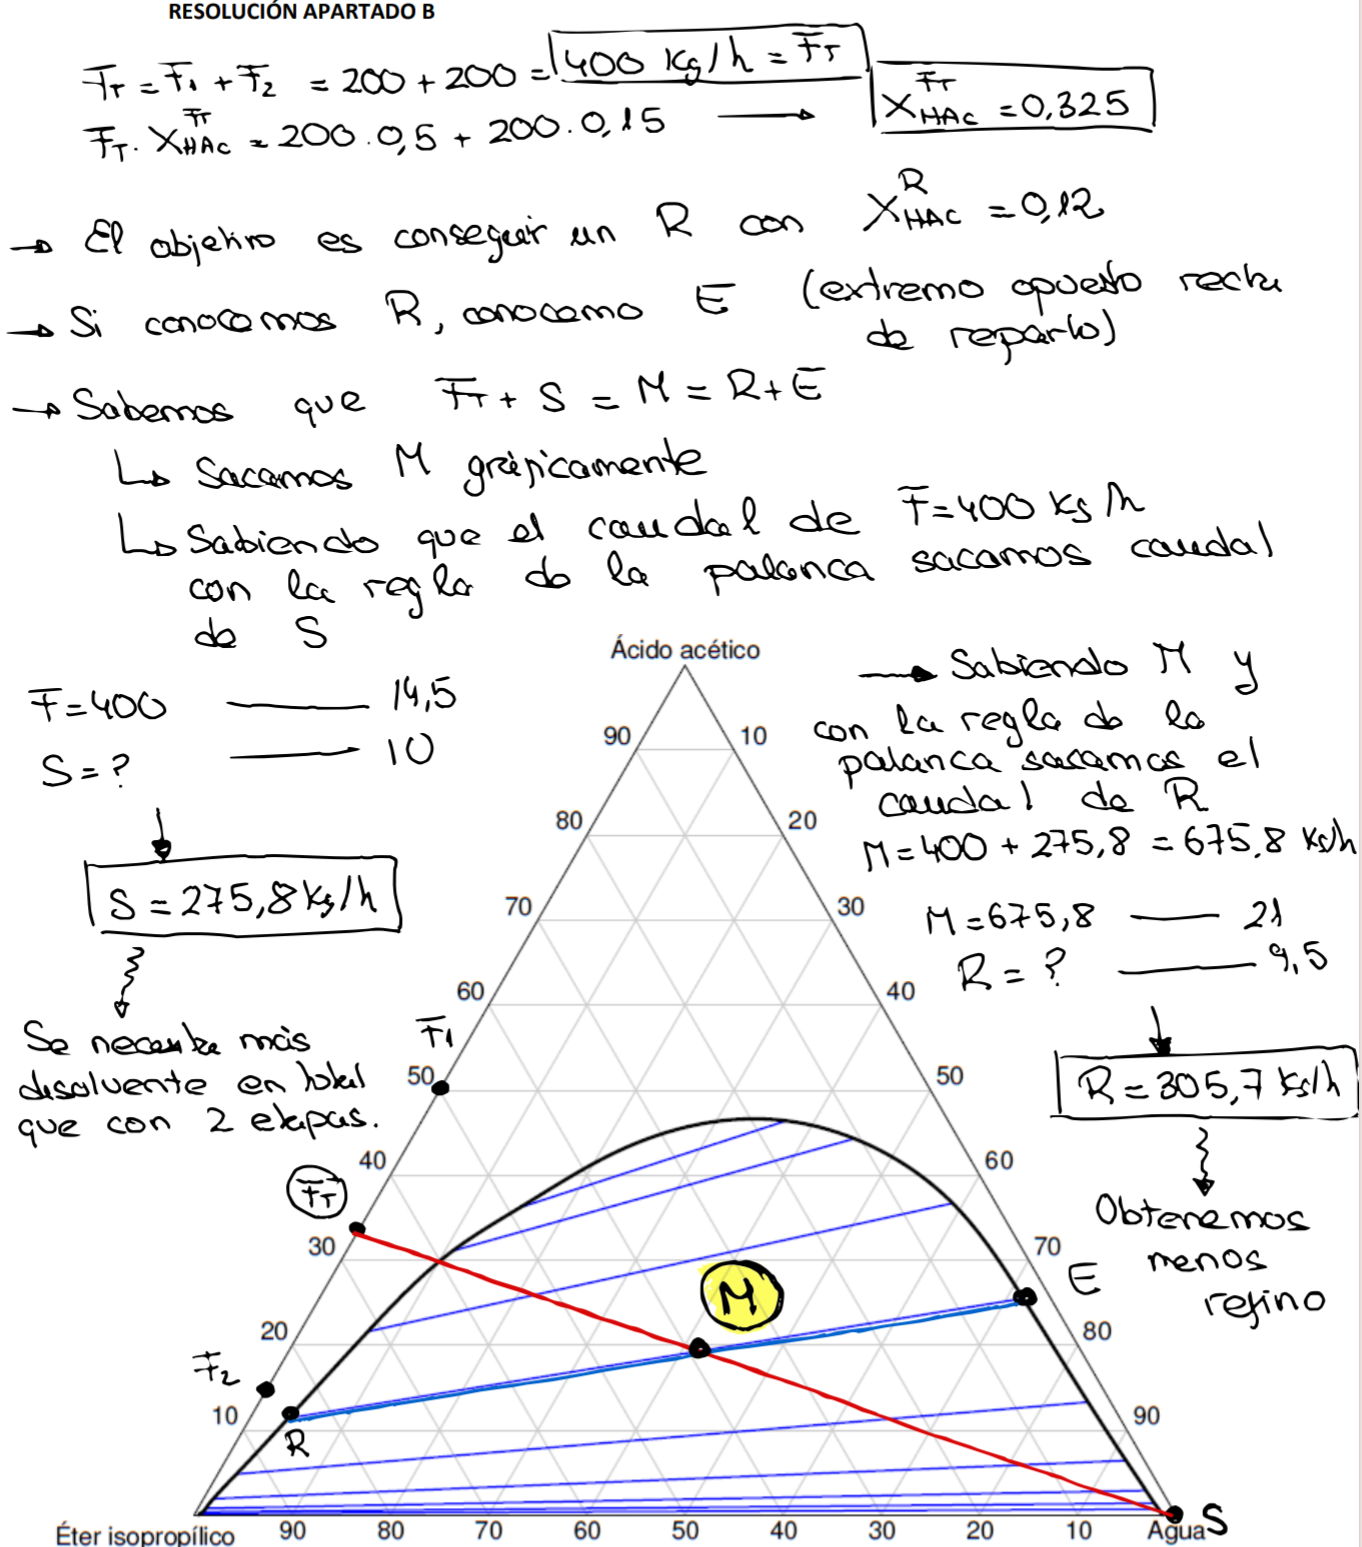 RESOLUCIÓN APARTADO B
F_T = F_1 + F_2 = 200 + 200 = 400 Kg/h = F_T
F_T · X_HAc^FT = 200 · 0,5 + 200 · 0,15 → X_HAc^FT = 0,325
→ El objetivo es conseguir un R con X_HAc^R = 0,12
→ Si conocemos R, conocemo E (extremo opuesto recta
de reparto)
→ Sabemos que F_T + S = M = R + E
↳ Sacamos M gráficamente
↳ Sabiendo que el caudal de F = 400 kg/h
con la regla de la palanca sacamos caudal
de S
F = 400 —— 14,5
S = ? —— 10
S = 275,8 kg/h
Se necesita más
disolvente en total
que con 2 etapas.
→ Sabiendo M y
con la regla de la
palanca sacamos el
caudal de R
M = 400 + 275,8 = 675,8 kg/h
M = 675,8 —— 21
R = ? —— 9,5
R = 305,7 kg/h
Obtenemos
menos
refino
Ácido acético
90 10
80 20
70 30
60 40
F_1
50 50
40 60
F_T
30 70
M
E
20 80
F_2
10 90
R
S
Éter isopropílico 90 80 70 60 50 40 30 20 10 Agua